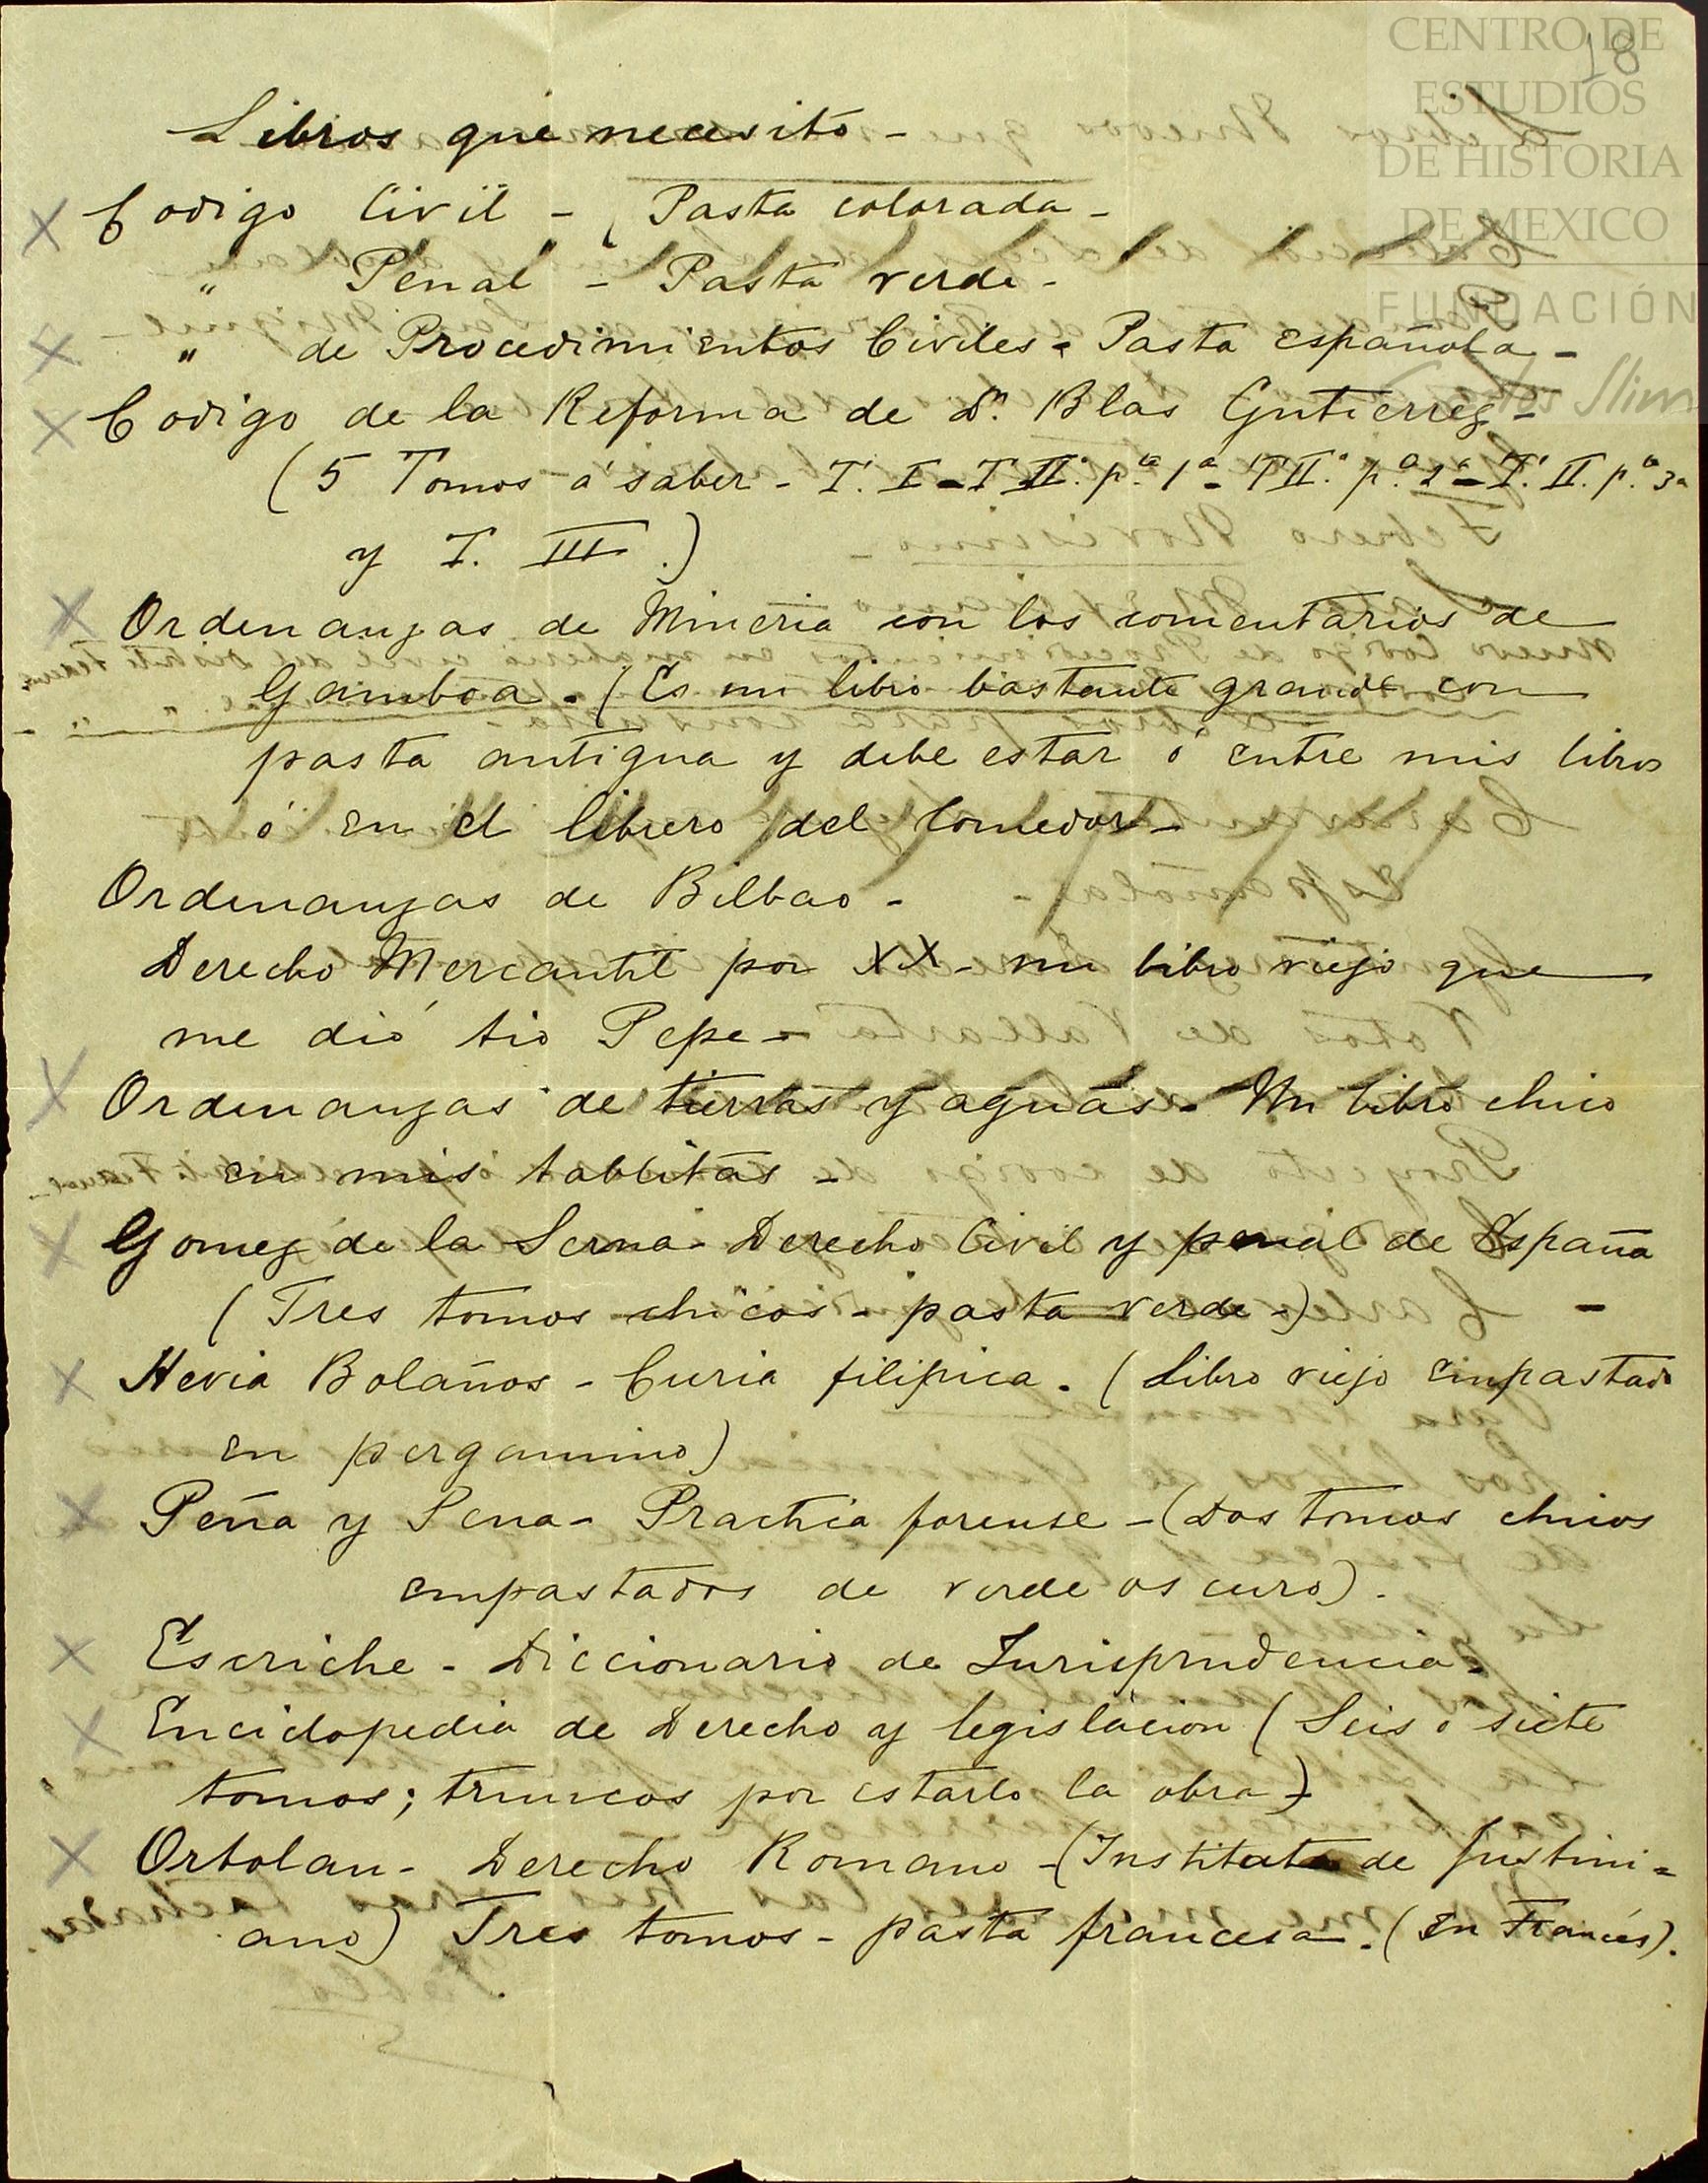 CENTRO DE
ESTUDIOS
DE HISTORIA
DE MEXICO
FUNDACIÓN
Carlos Slim
18
Libros que necesito -
X Codigo Civil - ( Pasta colorada -
" Penal - Pasta verde -
X " de Procedimientos Civiles - Pasta española -
X Codigo de la Reforma de Dn. Blas Gutierrez -
( 5 Tomos á saber - T. I - T II. p.te 1a - T II. p.te 2a - T. II. p.te 3a
y T. III . )
X Ordenanzas de Mineria con los comentarios de
Gamboa . ( Es un libro bastante grande con
pasta antigua y debe estar ó entre mis libros
ó en el librero del comedor -
Ordenanzas de Bilbao -
Derecho Mercantil por XX - un libro viejo que
me dió tio Pepe -
X Ordenanzas de tierras y aguas - Un libro chico
en mis tablitas -
X Gomez de la Serna - Derecho Civil y penal de España
( Tres tomos chicos - pasta verde - ) -
X Hevia Bolaños - Curia filipica . ( Libro viejo empastado
en pergamino )
X Peña y Pena - Practica forense - ( Dos tomos chicos
empastados de verde oscuro ) .
X Escriche - Diccionario de Jurisprudencia .
X Enciclopedia de Derecho y legislacion ( Seis ó siete
tomos ; truncos por estarlo la obra )
X Ortolan - Derecho Romano - ( Instituta de Justini =
ano ) Tres tomos - pasta francesa . ( En Francés ) .